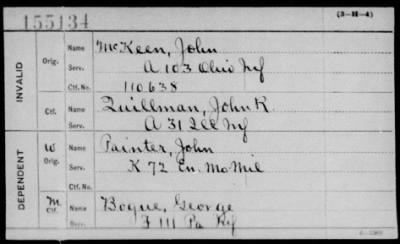 155134
(3-H-4)
INVALID
Orig.
Name McKeen, John
Serv. A 103 Ohio Inf
Ctf. No. 110638
Ctf.
Name Quillman, John R
Serv. A 31 Ill Inf
DEPENDENT
W Orig.
Name Painter, John
Serv. K 72 En. Mo Mil
Ctf. No.
M Ctf.
Name Bogue, George
Serv. F 111 Pa Inf